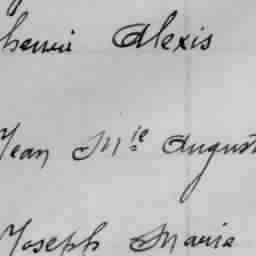 henri Alexis
Jean M^ie August
Joseph Marie